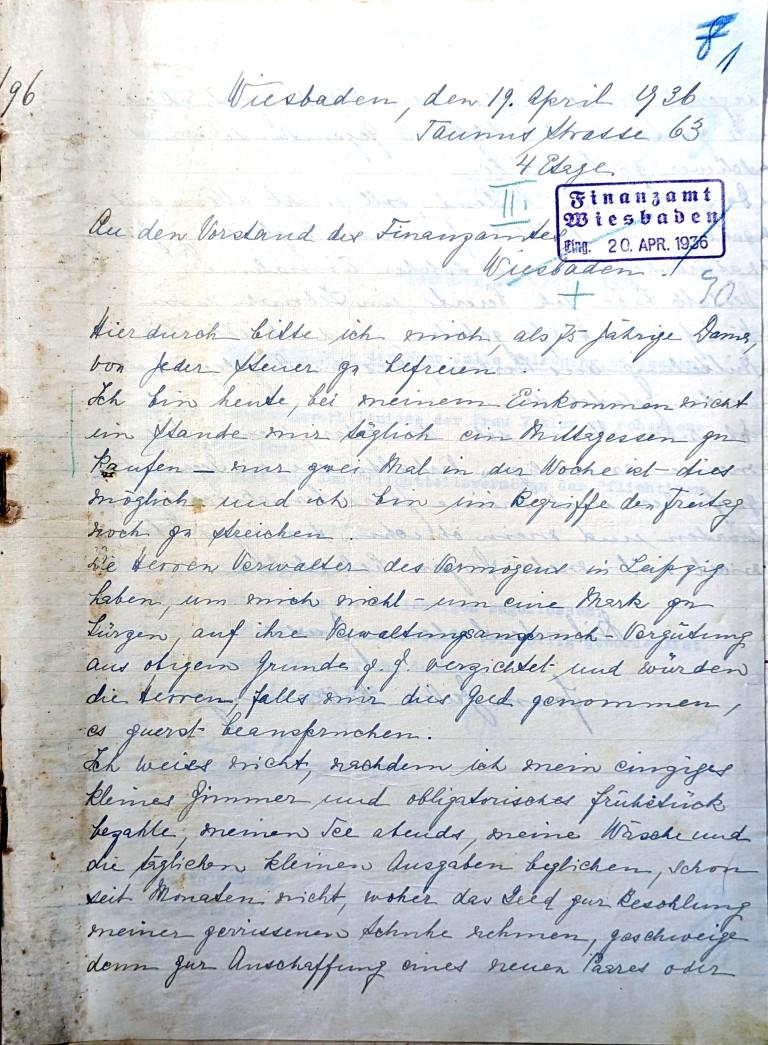 1
196
Wiesbaden, den 19. April 1936
Taunus Strasse 63
4 Etage
II.
Finanzamt
Wiesbaden
Eing. 20. APR. 1936
An den Vorstand des Finanzamtes
Wiesbaden.
Hierdurch bitte ich mich, als 75 jährige Dame,
von jeder Steuer zu befreien.
Ich bin heute, bei meinem Einkommen nicht
im Stande mir täglich ein Mittagessen zu
kaufen – nur zwei Mal in der Woche ist dies
möglich und ich bin im Begriffe den Freitag
noch zu streichen.
Die Herren Verwalter des Vermögens in Leipzig
haben, um mich nicht um eine Mark zu
kürzen, auf ihre Verwaltungsanspruch-Vergütung
aus obigem Grunde z. Z. verzichtet und würden
die Herren, falls mir dies Geld genommen,
es zuerst beanspruchen.
Ich weiss nicht, nachdem ich mein einziges
kleines Zimmer und obligatorisches Frühstück
bezahle, meinen Tee abends, meine Wäsche und
die täglichen kleinen Ausgaben beglichen, schon
seit Monaten nicht, woher das Geld zur Besohlung
meiner zerrissenen Schuhe nehmen, geschweige
denn zur Anschaffung eines neuen Paares oder